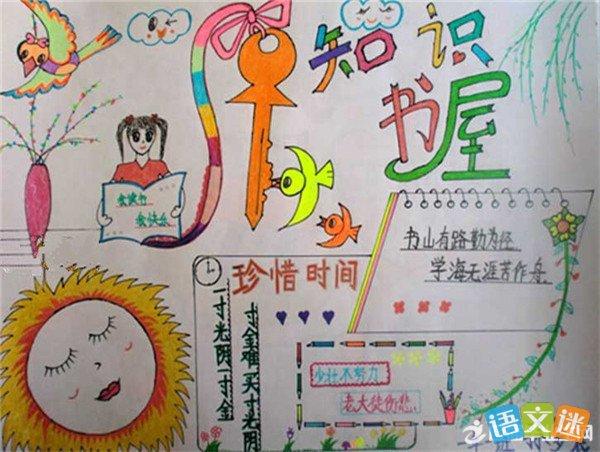 知识
书屋
我读书
我快乐
书山有路勤为径
学海无涯苦作舟
珍惜时间
一寸光阴一寸金
寸金难买寸光阴
少壮不努力
老大徒伤悲
语文迷